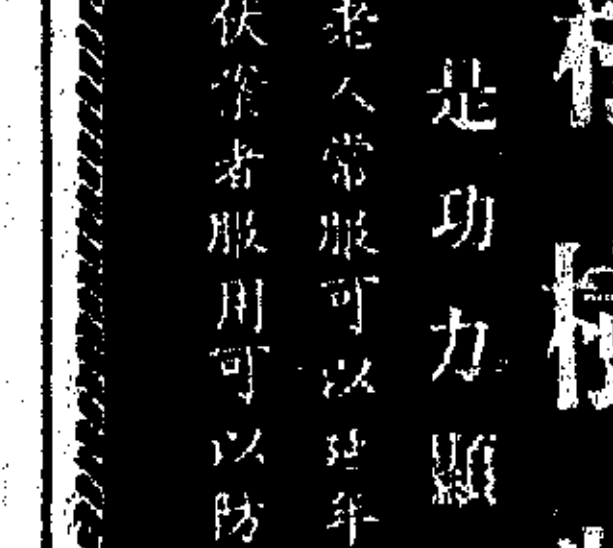 是功力顯
老人常服可以延年
伏業者服用可以防